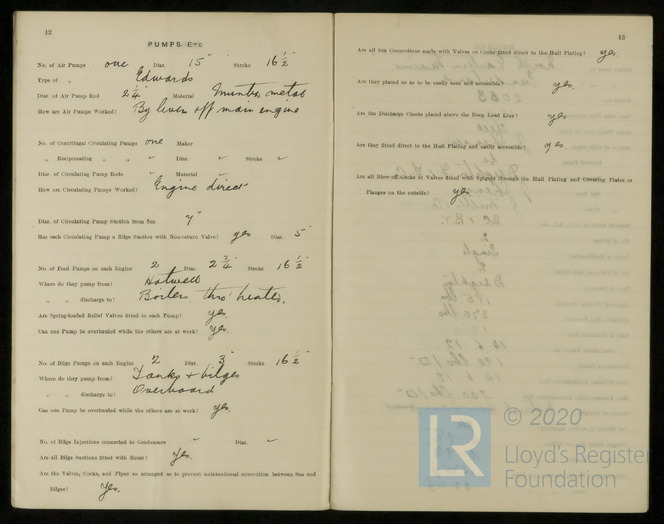 12
PUMPS ETC
No. of Air Pumps one Diar. 15" Stroke 16 1/2"
Type of " Edwards
Diar. of Air Pump Rod 2 1/4" Material Muntz metal
How are Air Pumps Worked? By lever off main engine
No. of Centrifugal Circulating Pumps one Maker
" Reciprocating " " Diar. Stroke
Diar. of Circulating Pump Rods Material
How are Circulating Pumps Worked? Engine direct
Diar. of Circulating Pump Suction from Sea 7"
Has each Circulating Pump a Bilge Suction with Non-return Valve? yes Diar. 5"
No. of Feed Pumps on each Engine 2 Diar. 2 3/4" Stroke 16 1/2"
Where do they pump from? Hotwell
" " discharge to? Boilers thro' heater.
Are Spring-loaded Relief Valves fitted to each Pump? yes.
Can one Pump be overhauled while the others are at work? yes.
No. of Bilge Pumps on each Engine 2 Diar. 3" Stroke 16 1/2"
Where do they pump from? Tanks + bilges
" " discharge to? Overboard
Can one Pump be overhauled while the others are at work? yes.
No. of Bilge Injections connected to Condensers Diar.
Are all Bilge Suctions fitted with Roses? Yes.
Are the Valves, Cocks, and Pipes so arranged as to prevent unintentional connection between Sea and
Bilges? Yes.
13
Are all Sea Connections made with Valves or Cocks fitted direct to the Hull Plating? yes.
Are they placed so as to be easily seen and accessible? yes.
Are the Discharge Chests placed above the Deep Load Line? yes
Are they fitted direct to the Hull Plating and easily accessible? yes
Are all Blow-off Cocks or Valves fitted with Spigots through the Hull Plating and Covering Plates or
Flanges on the outside? yes.
LR
© 2020
Lloyd's Register
Foundation